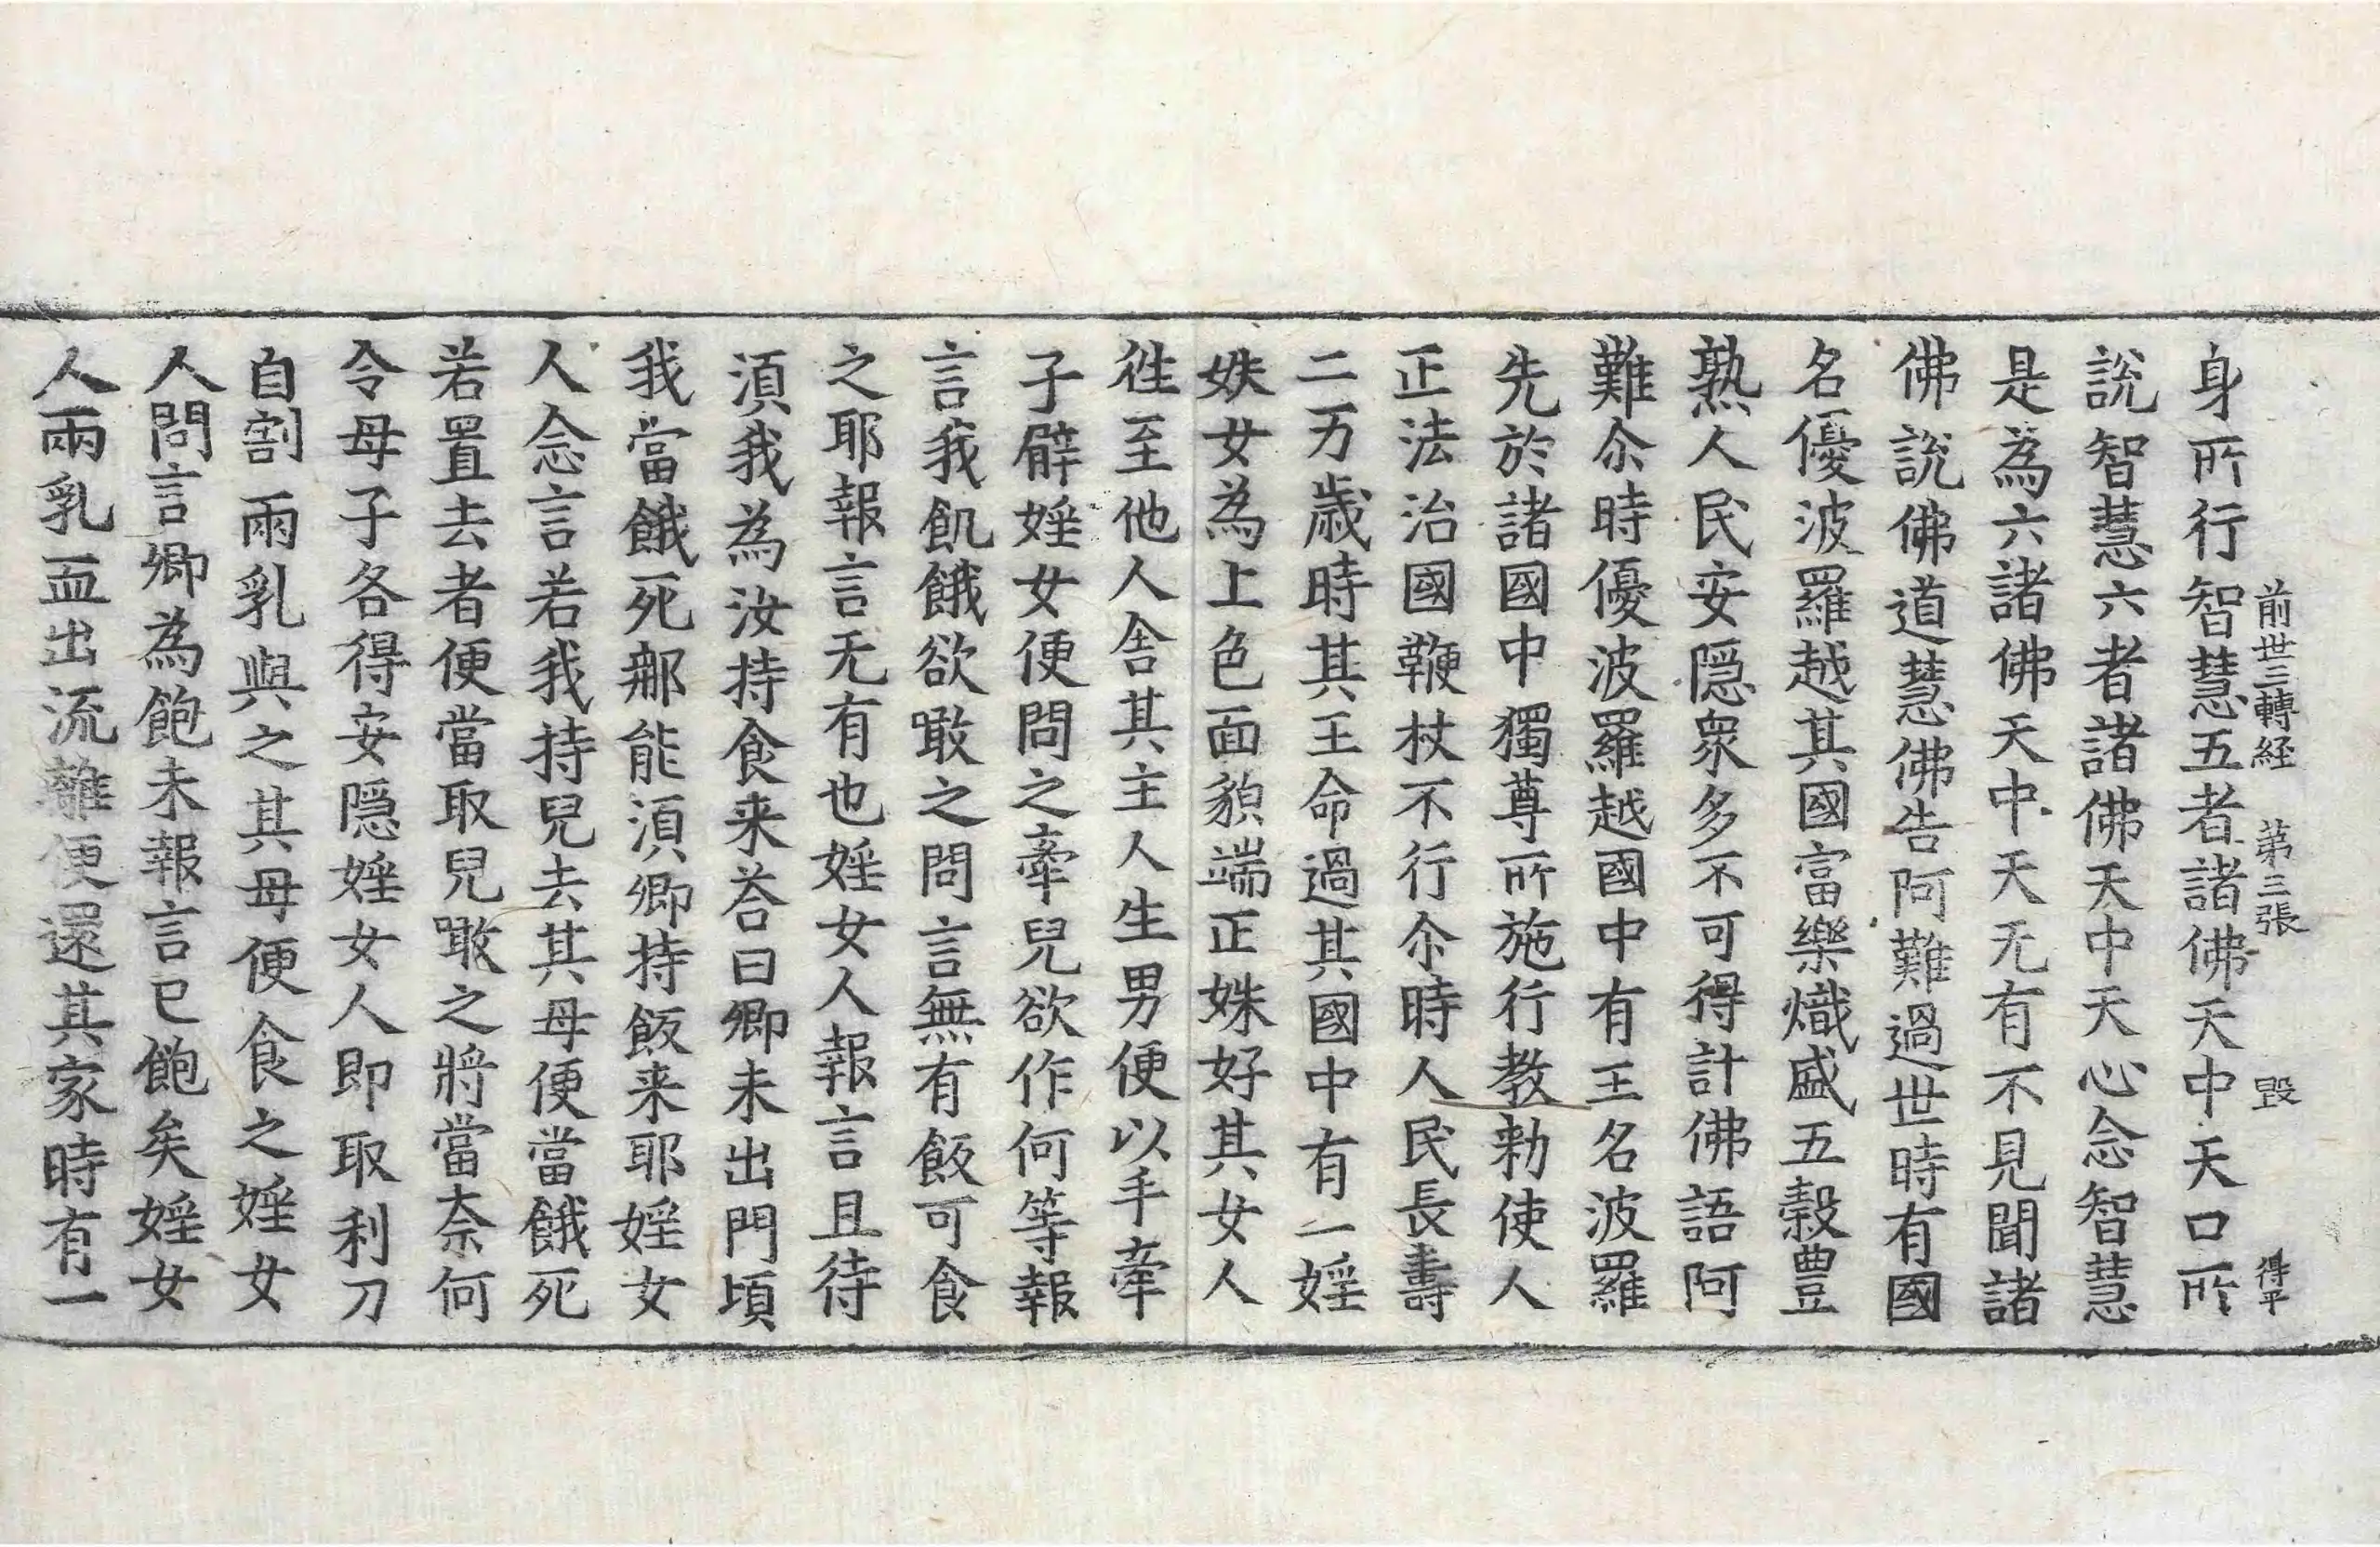 前世三轉経 第三張 毀 得平
身所行智慧五者諸佛天中天口所
說智慧六者諸佛天中天心念智慧
是為六諸佛天中天无有不見聞諸
佛說佛道慧佛告阿難過世時有國
名優波羅越其國富樂熾盛五穀豊
熟人民安隠衆多不可得計佛語阿
難尒時優波羅越國中有王名波羅
先於諸國中獨尊所施行教勑使人
正法治國鞭杖不行尒時人民長壽
二万歳時其王命過其國中有一婬
妷女為上色面貌端正姝好其女人
徃至他人舎其主人生男便以手牽
子臂婬女便問之牽兒欲作何等報
言我飢餓欲噉之問言無有飯可食
之耶報言无有也婬女人報言且待
湏我為汝持食来荅曰卿未出門頃
我當餓死那能湏卿持飯来耶婬女
人念言若我持兒去其母便當餓死
若置去者便當取兒噉之將當奈何
令母子各得安隠婬女人即取利刀
自割兩乳與之其母便食之婬女
人問言卿為飽未報言已飽矣婬女
人兩乳血出流離便還其家時有一